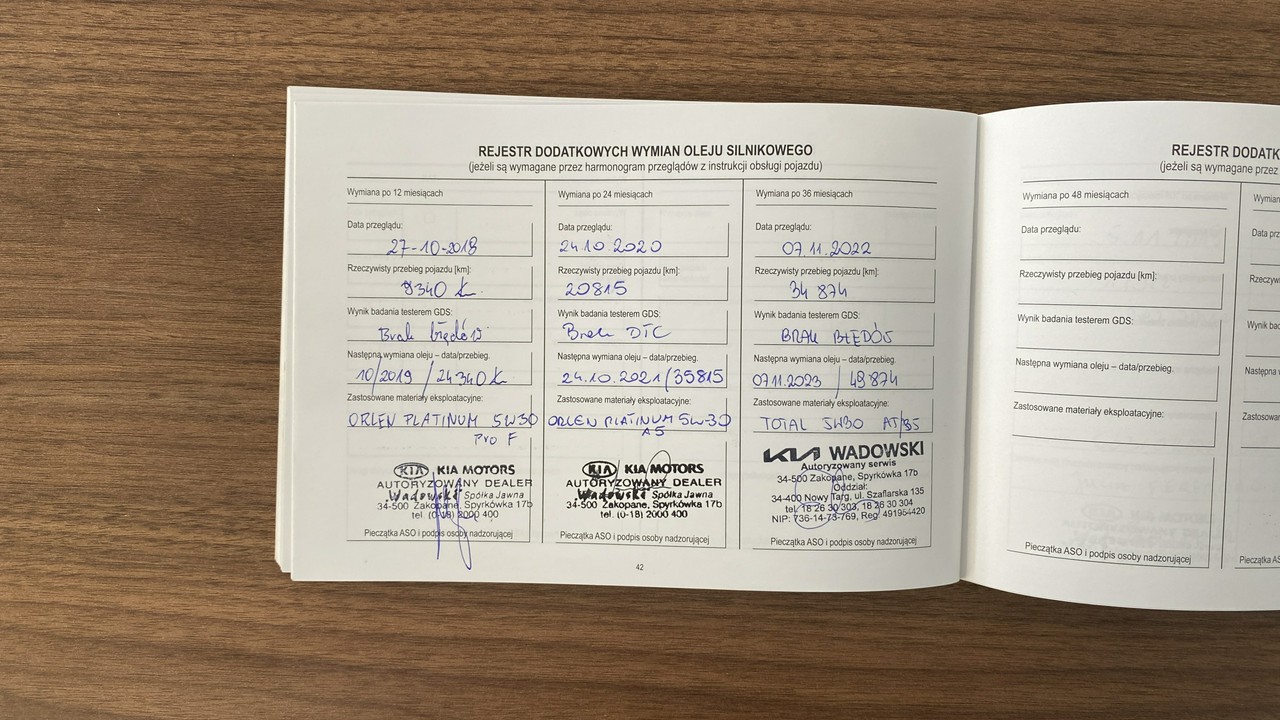 REJESTR DODATKOWYCH WYMIAN OLEJU SILNIKOWEGO
(jeżeli są wymagane przez harmonogram przeglądów z instrukcji obsługi pojazdu)
Wymiana po 12 miesiącach
Data przeglądu:
27-10-2018
Rzeczywisty przebieg pojazdu [km]:
9340 K
Wynik badania testerem GDS:
Brak błędów
Następna wymiana oleju – data/przebieg.
10/2019 / 24340 K
Zastosowane materiały eksploatacyjne:
ORLEN PLATINUM 5W30
Pro F
KIA KIA MOTORS
AUTORYZOWANY DEALER
Wadowski Spółka Jawna
34-500 Zakopane, Spyrkówka 17b
tel. (0-18) 2000 400
Pieczątka ASO i podpis osoby nadzorującej
Wymiana po 24 miesiącach
Data przeglądu:
24.10.2020
Rzeczywisty przebieg pojazdu [km]:
20815
Wynik badania testerem GDS:
Brak DTC
Następna wymiana oleju – data/przebieg.
24.10.2021/35815
Zastosowane materiały eksploatacyjne:
ORLEN PLATINUM 5W-30
A5
KIA KIA MOTORS
AUTORYZOWANY DEALER
Wadowski Spółka Jawna
34-500 Zakopane, Spyrkówka 17b
tel. (0-18) 2000 400
Pieczątka ASO i podpis osoby nadzorującej
Wymiana po 36 miesiącach
Data przeglądu:
07.11.2022
Rzeczywisty przebieg pojazdu [km]:
34 874
Wynik badania testerem GDS:
BRAK BŁĘDÓW
Następna wymiana oleju – data/przebieg.
07.11.2023 / 49874
Zastosowane materiały eksploatacyjne:
TOTAL 5W30
KIA WADOWSKI
Autoryzowany serwis
34-500 Zakopane, Spyrkówka 17b
Oddział:
34-400 Nowy Targ, ul. Szaflarska 135
tel. 18 26 30 303, 18 26 30 304
NIP: 736-14-73-769, Reg. 491954420
Pieczątka ASO i podpis osoby nadzorującej
42
REJESTR DODATK
(jeżeli są wymagane przez
Wymiana po 48 miesiącach
Data przeglądu:
Rzeczywisty przebieg pojazdu [km]:
Wynik badania testerem GDS:
Następna wymiana oleju – data/przebieg.
Zastosowane materiały eksploatacyjne:
Pieczątka ASO i podpis osoby nadzorującej